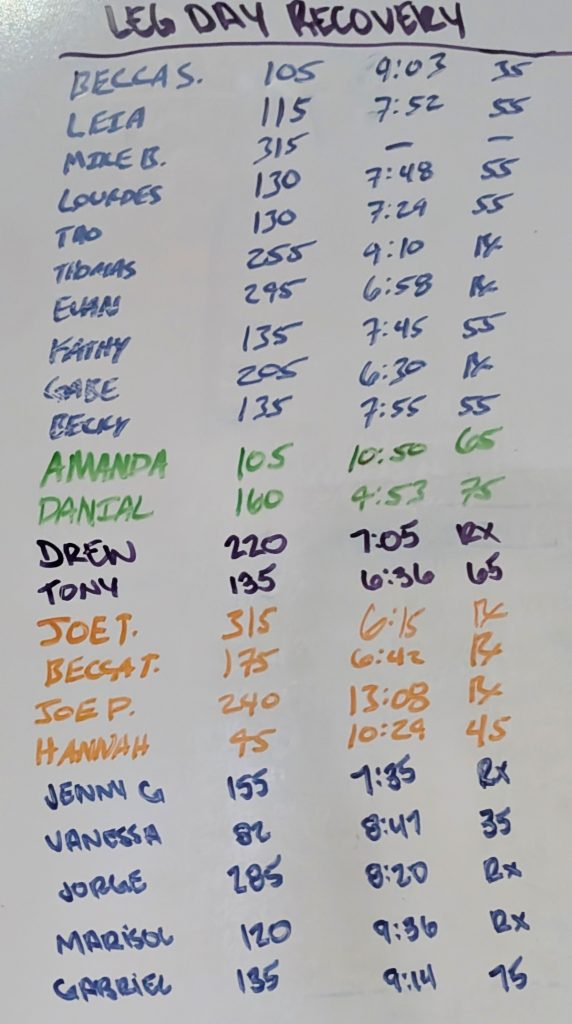 LEG DAY RECOVERY
BECCA S. 105 9:03 35
LEIA 115 7:52 55
MIKE B. 315 - -
LOURDES 130 7:48 55
TAO 130 7:29 55
THOMAS 255 9:10 Rx
EVAN 295 6:58 Rx
KATHY 135 7:45 55
GABE 205 6:30 Rx
BECKY 135 7:55 55
AMANDA 105 10:50 65
DANIAL 160 9:53 75
DREW 220 7:05 Rx
TONY 135 6:36 65
JOE T. 315 6:15 Rx
BECCA T. 175 6:42 Rx
JOE P. 240 13:08 Rx
HANNAH 95 10:29 45
JENNY G 155 7:35 Rx
VANESSA 82 8:47 35
JORGE 285 8:20 Rx
MARISOL 120 9:36 Rx
GABRIEL 135 9:14 75